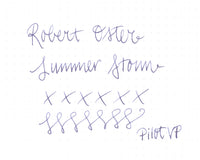 Robert Oster
Summer Storm
x x x x x x
Pilot VP